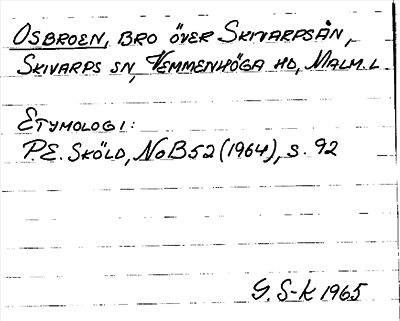 OSBROEN, BRO ÖVER SKIVARPSÅN,
SKIVARPS SN, VEMMENHÖGA HD, MALM. L.
ETYMOLOGI:
P.E. SKÖLD, NoB 52 (1964), s. 92
G. S-K 1965